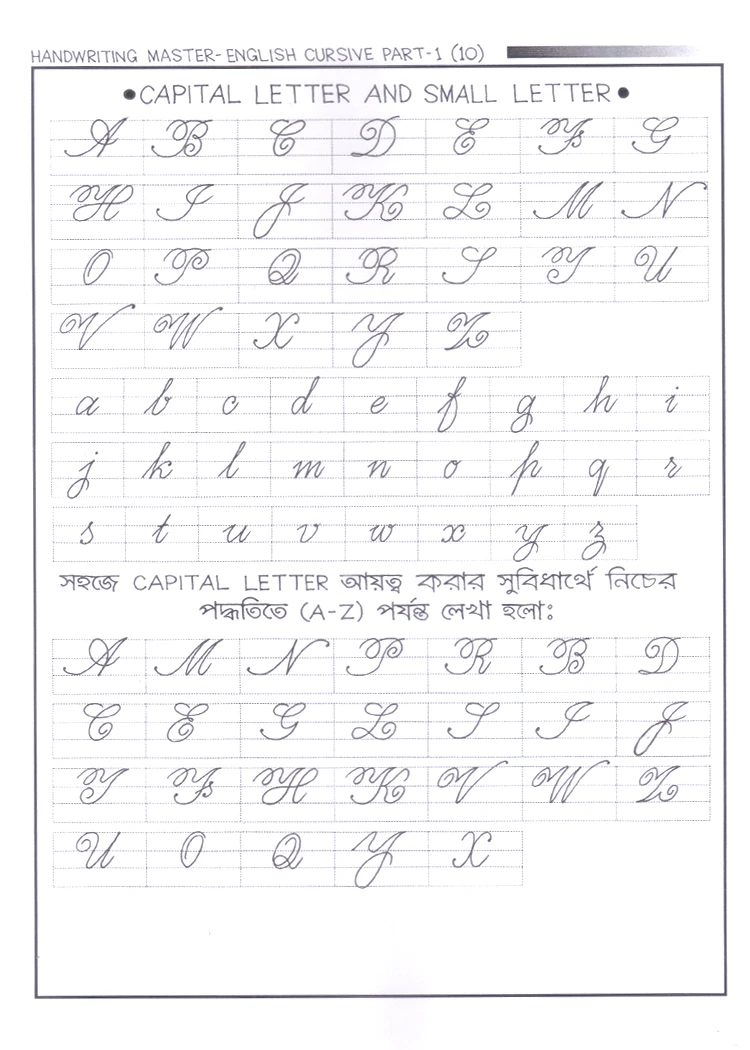 HANDWRITING MASTER-ENGLISH CURSIVE PART-1 (10)
•CAPITAL LETTER AND SMALL LETTER•
A B C D E F G
H I J K L M N
O P Q R S T U
V W X Y Z
a b c d e f g h i
j k l m n o p q r
s t u v w x y z
সহজে CAPITAL LETTER আয়ত্ব করার সুবিধার্থে নিচের
পদ্ধতিতে (A-Z) পর্যন্ত লেখা হলোঃ
A M N P R B D
C E G L S I J
T F H K V W Z
U O Q Y X